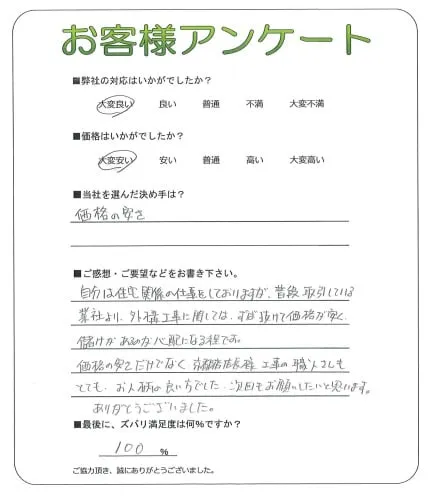 お客様アンケート
■弊社の対応はいかがでしたか？
大変良い 良い 普通 不満 大変不満
■価格はいかがでしたか？
大変安い 安い 普通 高い 大変高い
■当社を選んだ決め手は？
価格の安さ
■ご感想・ご要望などをお書き下さい。
自分は住宅関係の仕事をしておりますが、普段取引している
業社より、外構工事に関しては、ずば抜けて価格が安く、
儲けがあるのか心配になる程です。
価格の安さだけでなく 店長様、工事の職人さんも
とても、お人柄は良い方でした。次回もお願いしたいと思います。
ありがとうございました。
■最後に、ズバリ満足度は何%ですか？
100 %
ご協力頂き、誠にありがとうございました。